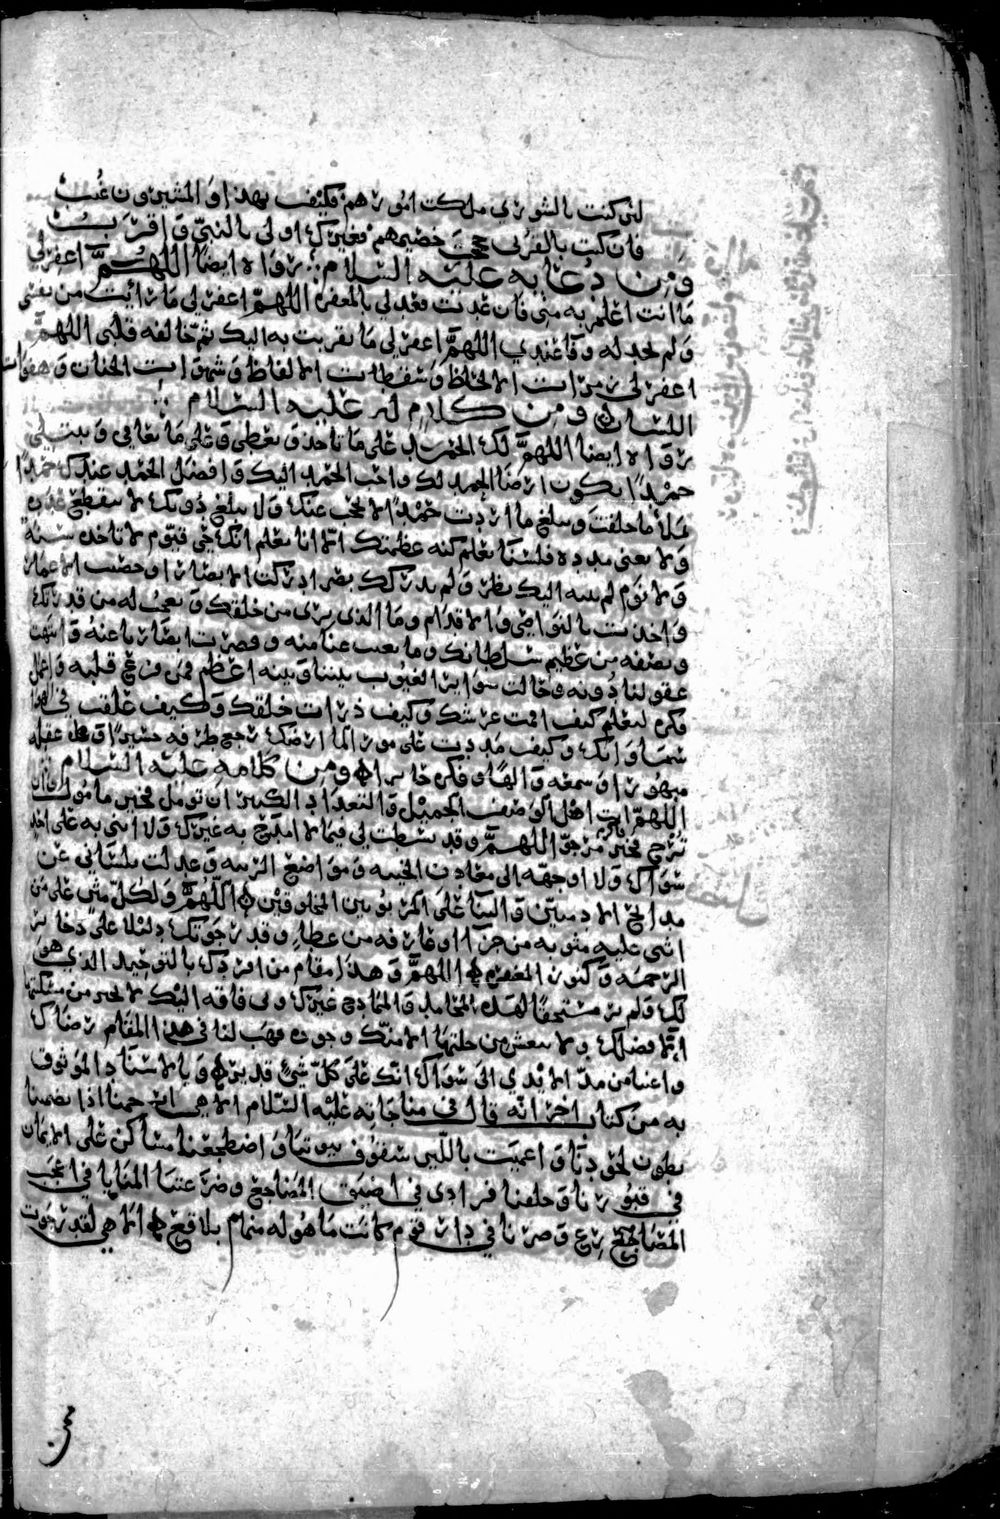 لئن كنت بالشورى ملكت امورهم فكيف بهذا والمشيرون غيب
فان كنت بالقربى حججت خصيمهم فغيرك اولى بالنبي واقرب
ومن دعا به عليه السلام رواه ايضا اللهم اغفر لي
ما انت اعلم به مني فان عدت فعد لي بالمغفرة اللهم اغفر لي ما رايت من نفسي
ولم تجد له وفا عندي اللهم اغفر لي ما تقربت به اليك ثم خالفه قلبي اللهم
اغفر لي رمزات الالحاظ وسقطات الالفاظ وشهوات الجنان وهفوات
اللسان ومن كلام له عليه السلام
رواه ايضا اللهم لك الحمد على ما تاخذ وتعطي وعلى ما تعافي وتبتلي
حمدا يكون ارضا الحمد لك واحب الحمد اليك وافضل الحمد عندك حمدا
يملا ما خلقت ويبلغ ما اردت حمدا لا يحجب عنك ولا يبلغ دونك لا ينقطع عدده
ولا يفنى مدده فلسنا نعلم كنه عظمتك انما نعلم انك حي قيوم لا تاخذه سنة
ولا نوم لم ينته اليك نظر ولم يدركك بصر ادركت الابصار واحصيت الاعمار
واخذت بالنواصي والاقدام وما الذي نرى من خلقك ونعجب له من قدرتك
ونصفه من عظيم سلطانك وما يغيب عنا منه وقصرت ابصارنا عنه وانتهت
عقولنا دونه وحالت سواتر الغيوب بيننا وبينه اعظم فمن فرغ قلبه واعمل
فكره ليعلم كيف اقمت عرشك وكيف ذرات خلقك وكيف علقت في الهوا
سماواتك وكيف مددت على مور الما ارضك رجع طرفه حسيرا وعقله
مبهورا وسمعه والها وفكره حايرا ومن كلامه عليه السلام
اللهم انت اهل الوصف الجميل والتعداد الكثير ان تومل فخير مامول وان
ترج فخير مرجو اللهم وقد بسطت لي فيما لا امدح به غيرك ولا اثني به على احد
سواك ولا اوجهه الى معادن الخيبه ومواضع الريبه وعدلت بلساني عن
مدائح الادميين والثنا على المربوبين المخلوقين اللهم ولكل مثن على من
اثنى عليه مثوبه من جزا او عارفه من عطا وقد رجوتك دليلا على ذخاير
الرحمه وكنوز المغفره اللهم وهذا مقام من افردك بالتوحيد الذي هو
لك ولم ير مستحقا لهذه المحامد والممادح غيرك وبي فاقه اليك لا يجبر مسكنتها
الا فضلك ولا ينعش من خلتها الا منك وجودك فهب لنا في هذا المقام رضاك
واغننا من مد الايدي الى سواك انك على كل شي قدير وبالاسناد الموثوق
به من كتاب اخر انه قال في مناجاته عليه السلام الاهي ارحمنا اذا تضمنتنا
بطون لحودنا واعميت باللبن سقوف بيوتنا واضطجعنا مساكين على الايمان
في قبورنا وخلفنا فرادى في اضيق المضاجع وصرعتنا المنايا في اعجب
المصارع وصرنا في ديار قوم كانت ماهوله منهم بلاقع الاهي لقد رجوت
ممن